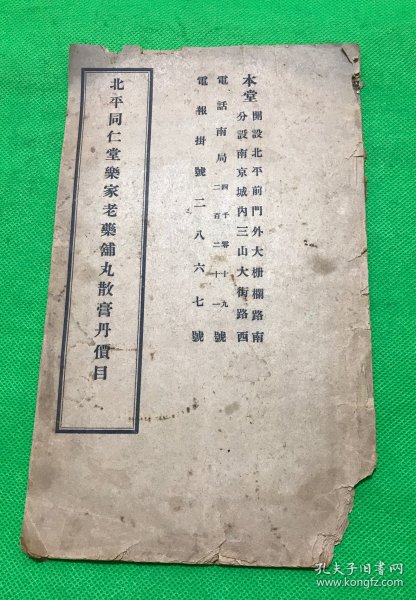 本堂 開設北平前門外大柵欄路南
分設南京城內三山大街路西
電話南局 四千零十九
二百二十一 號
電報掛號二八六七號
北平同仁堂樂家老藥舖丸散膏丹價目
孔夫子旧书网
www.kongfz.com